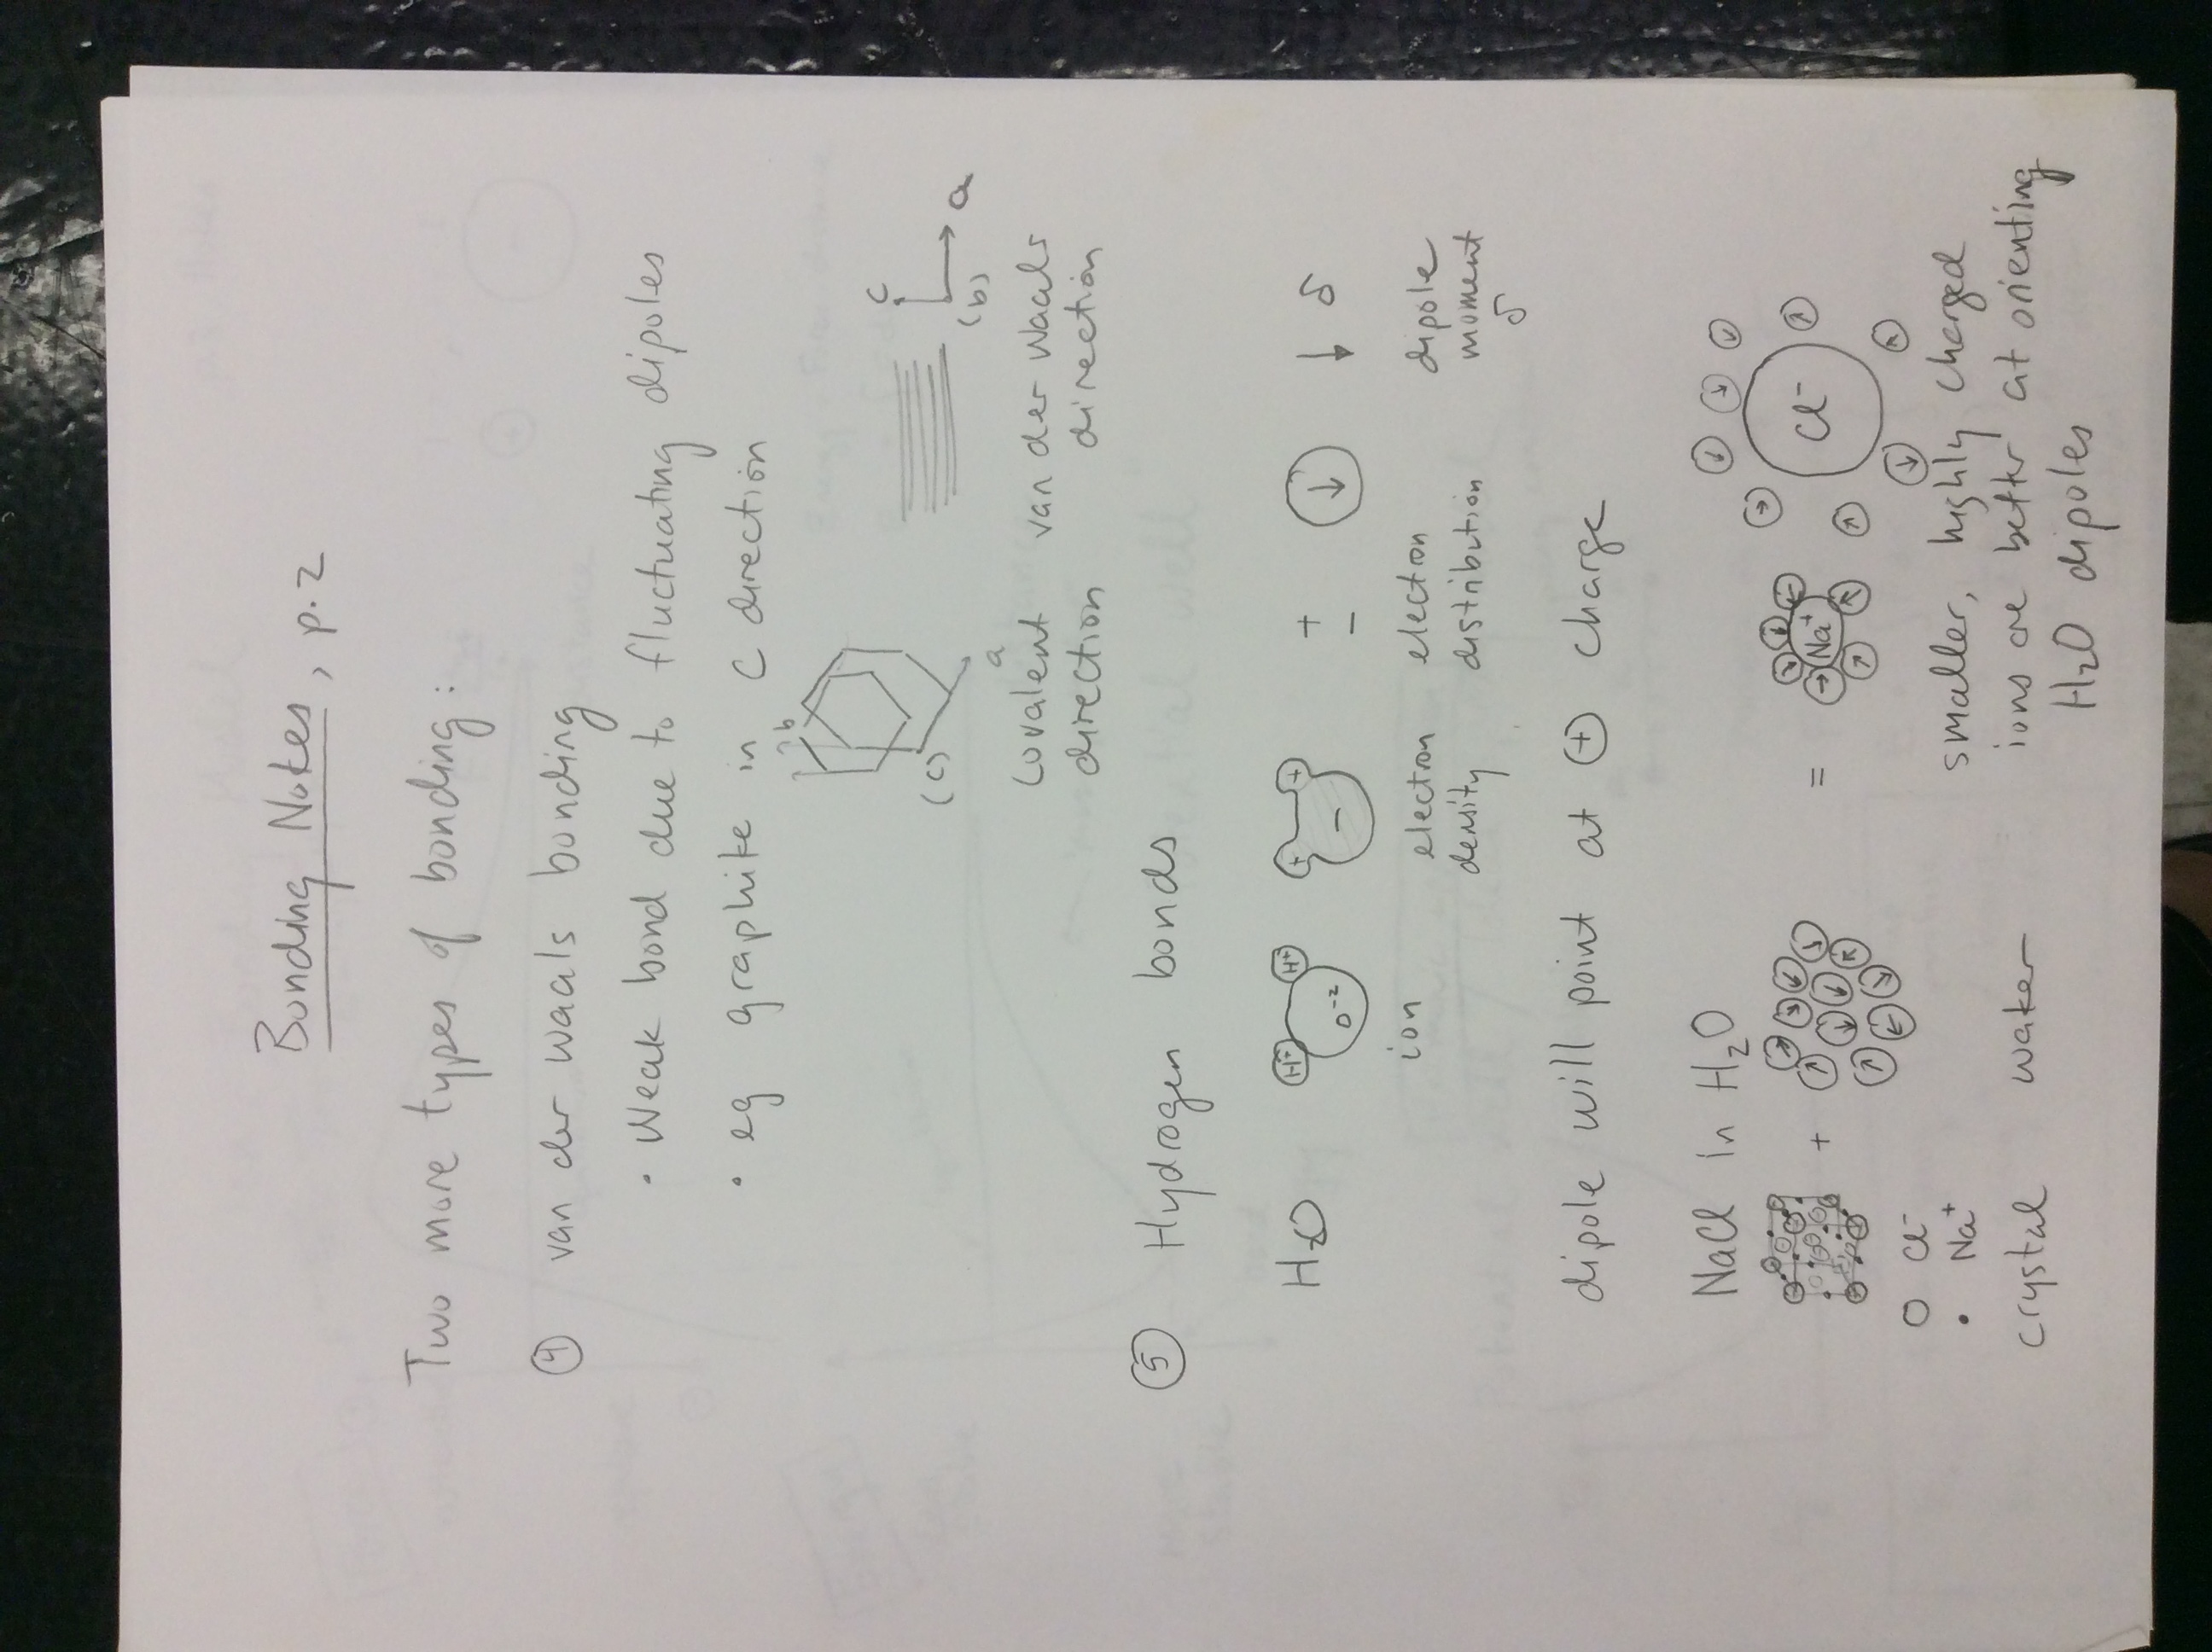 Bonding Notes, p.2
Two more types of bonding:
④ van der Waals bonding
• Weak bond due to fluctuating dipoles
• eg graphite in C direction
b
(c)
a
c
(b)
a
Covalent direction
van der Waals direction
⑤ Hydrogen bonds
H₂O
H⁺ H⁺
O⁻²
+ +
−
+
−
↓
↓ δ
ion
electron density
electron distribution
dipole moment
δ
dipole will point at ⊕ charge
NaCl in H₂O
+ = Na⁺ Cl⁻
○ Cl⁻
• Na⁺
crystal
water
smaller, highly charged
ions are better at orienting
H₂O dipoles